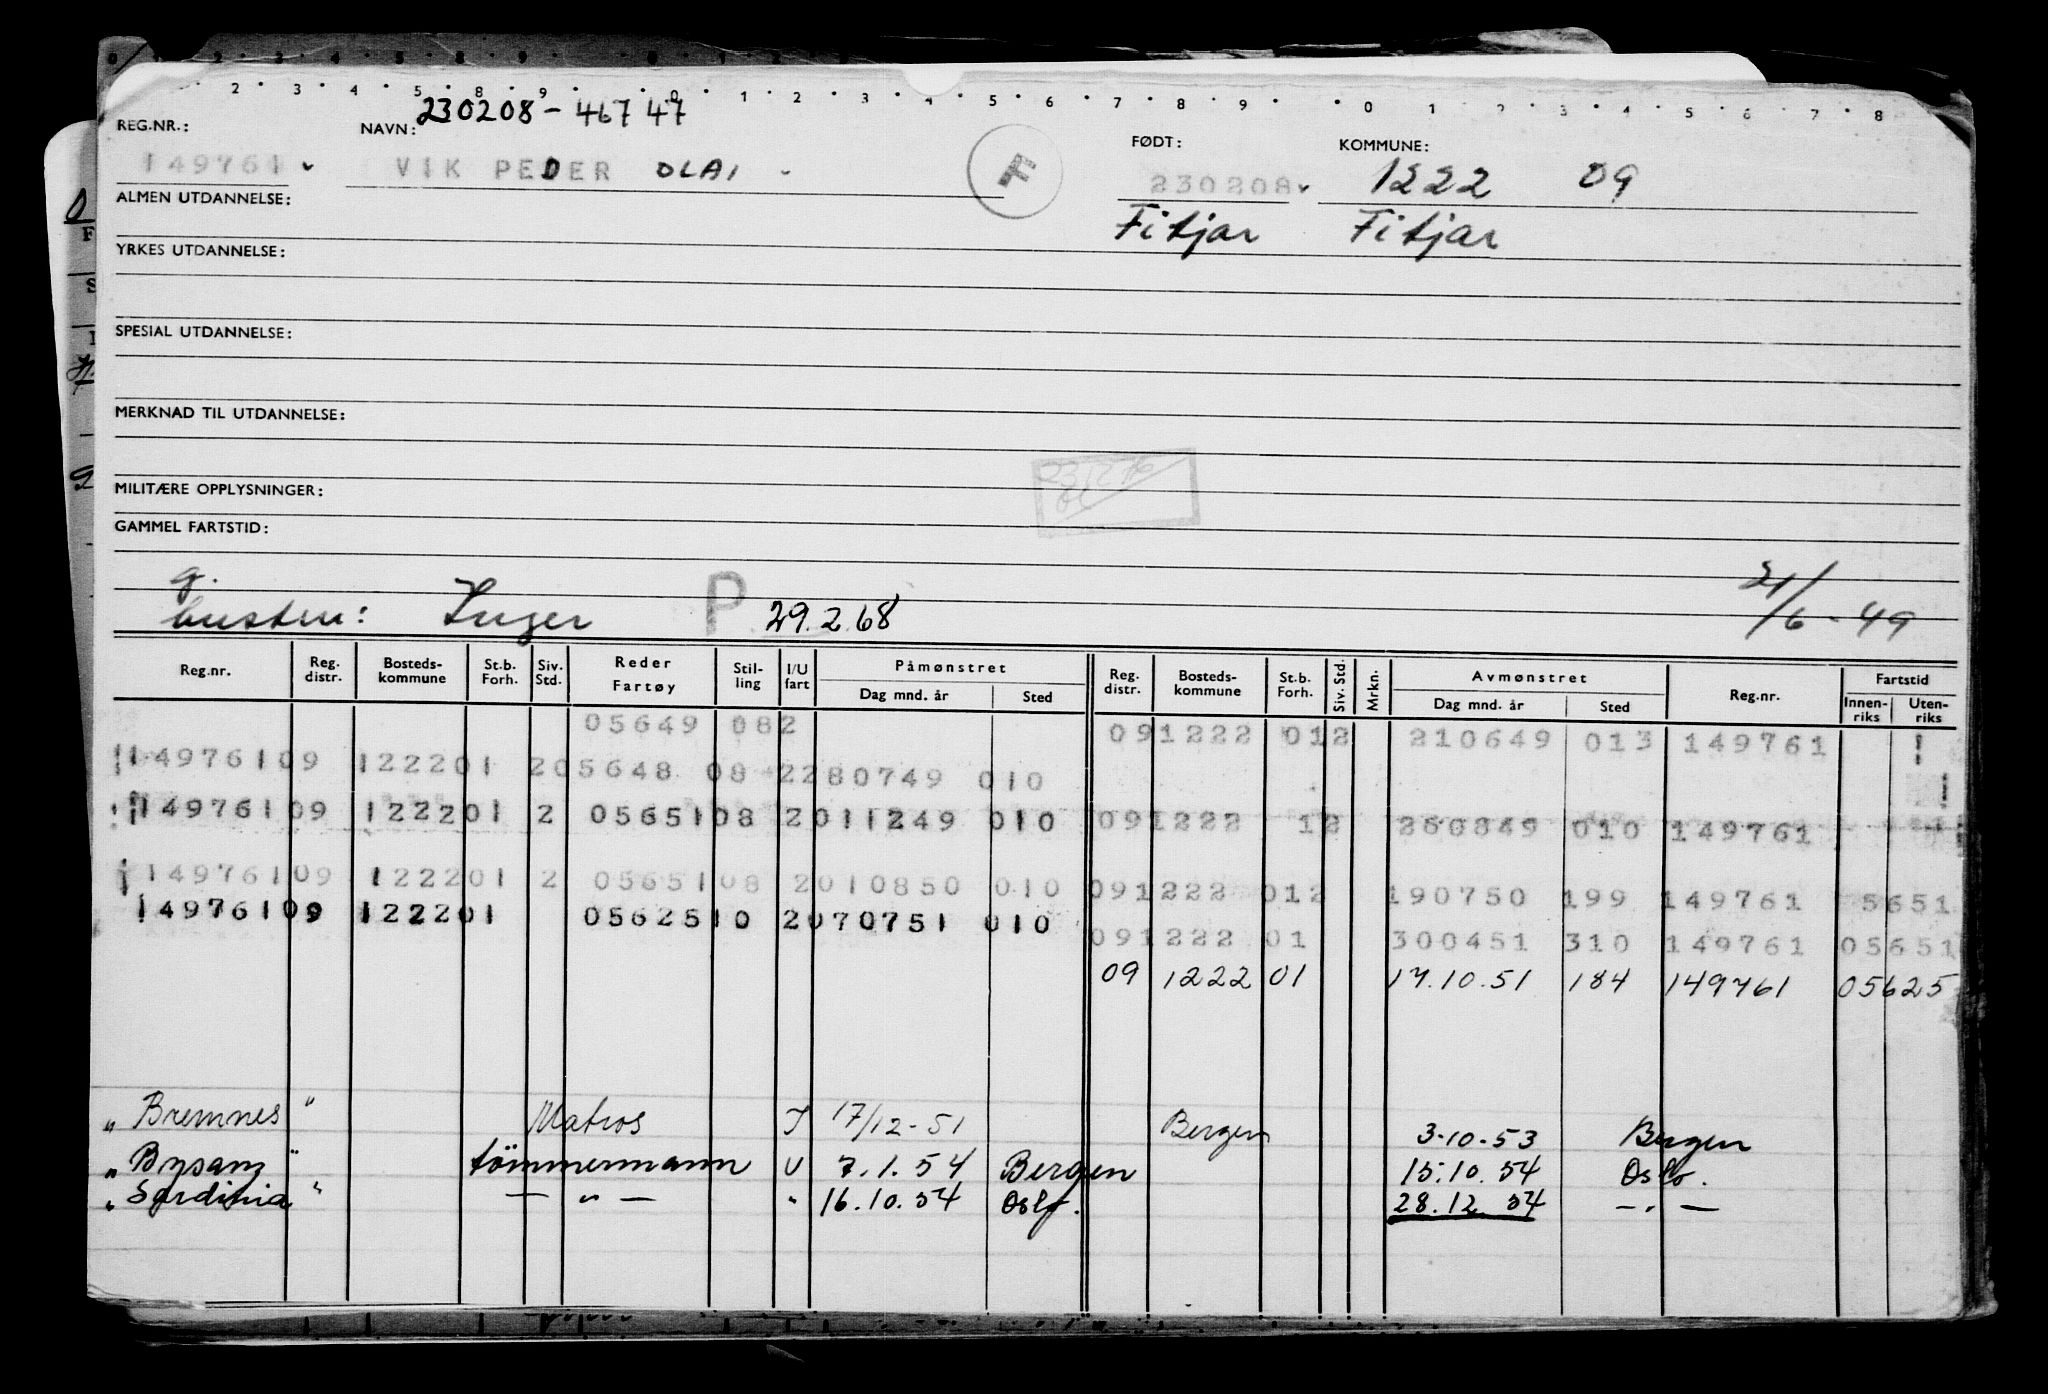 230208-46747
REG.NR.: NAVN: FØDT: KOMMUNE:
149761 VIK PEDER OLAI F 230208 1222 09
ALMEN UTDANNELSE: Fitjar Fitjar
YRKES UTDANNELSE:
SPESIAL UTDANNELSE:
MERKNAD TIL UTDANNELSE:
MILITÆRE OPPLYSNINGER:
GAMMEL FARTSTID:
g.
hustru: Inger P 29.2.68 21/6-49
Reg.nr. Reg. distr. Bosteds-kommune St.b. Forh. Siv. Std. Reder Fartøy Stil-ling I/U fart Påmønstret Dag mnd. år Sted Reg. distr. Bosteds-kommune St.b. Forh. Siv. Std. Mrkn. Avmønstret Dag mnd. år Sted Reg.nr. Fartstid Innen-riks Uten-riks
05649 082 091222 012 210649 013 149761
149761 09 1222 01 2 05648 08 2 280749 010
149761 09 1222 01 2 05651 08 2 011249 010 091222 12 260849 010 149761
149761 09 1222 01 2 05651 08 2 010850 010 091222 012 190750 199 149761 5651
149761 09 1222 01 05625 10 2 070751 010 091222 01 300451 310 149761 05651
09 1222 01 17.10.51 184 149761 05625
„ Bremnes " Matros I 17/12-51 Bergen 3-10-53 Bergen
„ Bysanz " tömmermann U 7.1.54 Bergen 15.10.54 Oslo.
„ Sardinia " — " — " 16.10.54 Oslo. 28.12.54 —"—